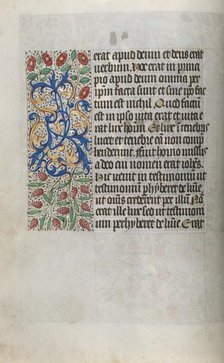 erat apud deum et deus erat
verbum. Hoc erat in princi
pio apud deum omnia per
ipsum facta sunt et sine ipso fac
tum est nichil. Quod factum
est in ipso vita erat et vita e
rat lux hominum. Et lux in tenebris
lucet et tenebre eam non com
prehenderunt. Fuit homo missus
a deo cui nomen erat iohannes.
Hic venit in testimonium ut
testimonium perhiberet de lumine,
ut omnes crederent per illum. Non
erat ille lux sed ut testimonium
perhiberet de lumine. Erat